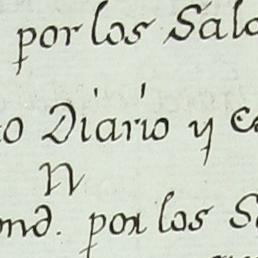 por los Sala
o Diario y ca
N
ond. por los S